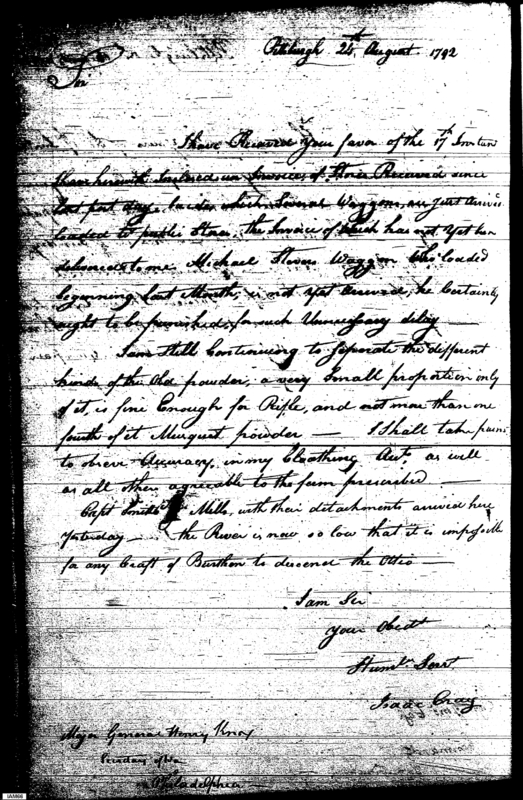 Pittsburgh 24th August 1792
Sir
I have Received your favor of the 17th Instant
I have herewith Inclosed an Invoice of Stores Received since
last post day, besides which Several Waggons, are Just arrived
loaded to public Stores, the Invoice of which has not Yet been
delivered to me. Michael Stovers Waggon Who loaded
begenning last Month, is not yet arrived, he Certainly
ought to be punished, for such Unnecessary delay —
I am Still Continuing to Seperate the different
kinds of the Old powder, a very Small proportion only
of it, is fine Enough for Rifle, and not more than one
fourth of it Musquet powder — I Shall take pains
to observe Accuracy, in my Cloathing Acct. as well
as all others agreeable to the form prescribed —
Capt Smith & Mills, with their detachments arrived here
Yesterday — the River is now so low that it is impossible
for any Craft of Burthen to descend the Ohio —
I am Sir
Your Obedt
Humle Servt
Isaac Craig
Major General Henry Knox
Secretary of War
Philadelphia
IAM66